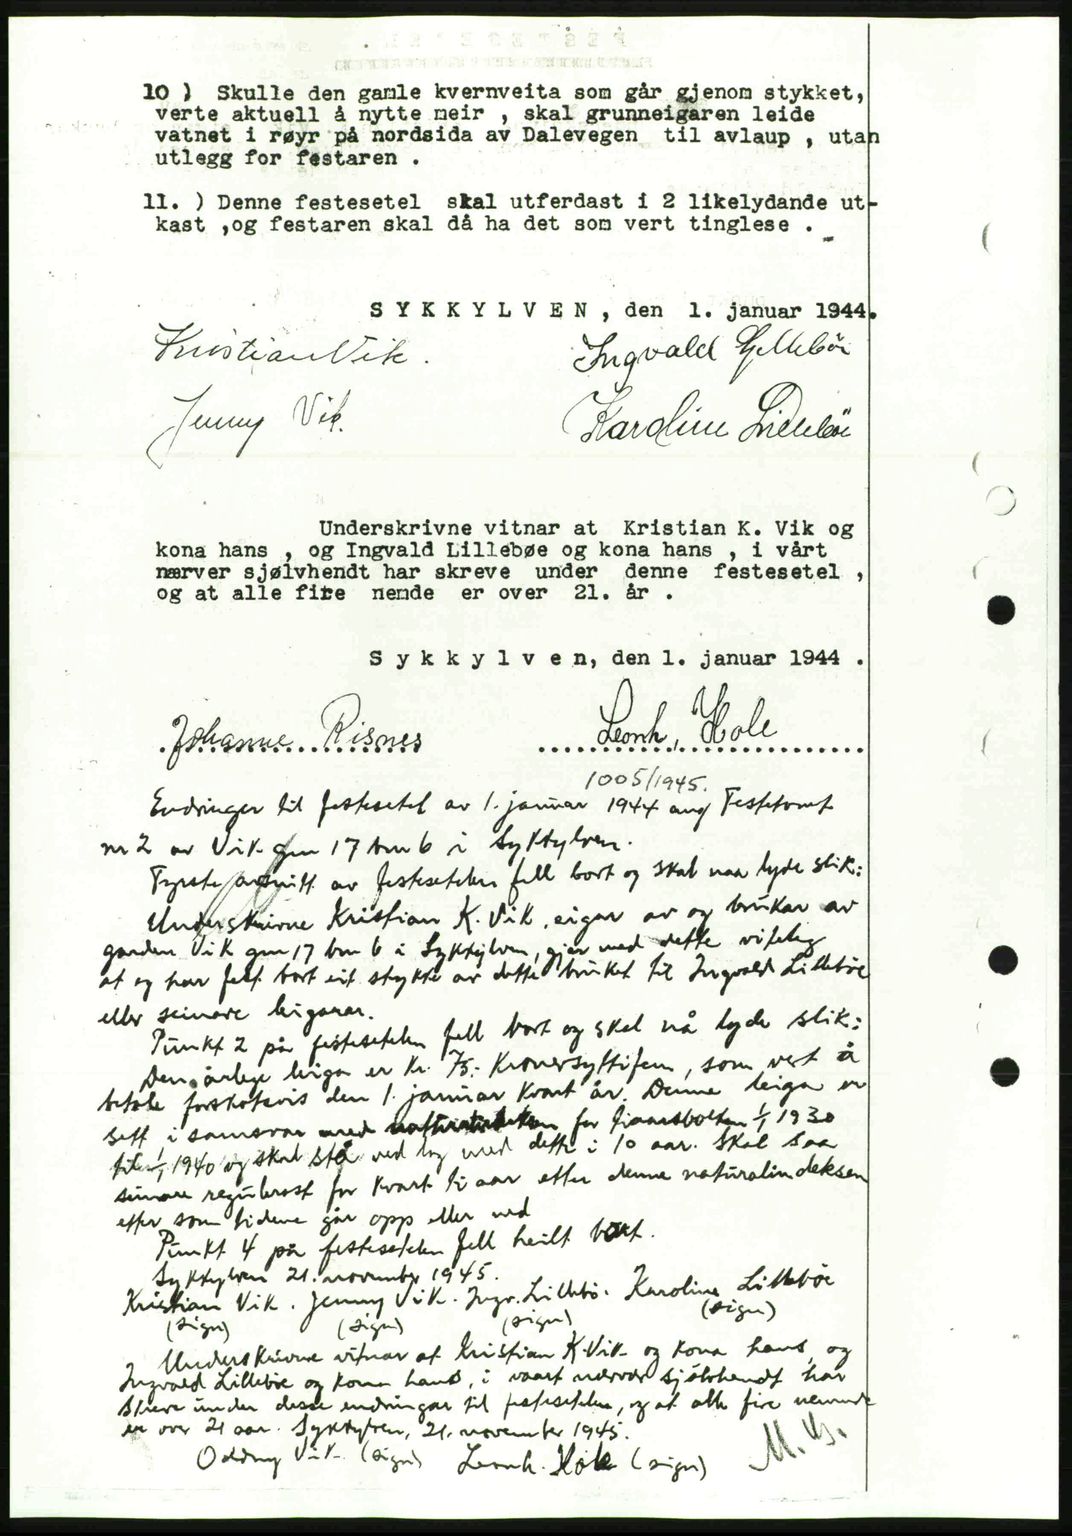 10 ) Skulle den gamle kvernveita som går gjenom stykket,
verte aktuell å nytte meir , skal grunneigaren leide
vatnet i røyr på nordsida av Dalevegen til avlaup , utan
utlegg for festaren .
11. ) Denne festesetel skal utferdast i 2 likelydande ut-
kast ,og festaren skal då ha det som vert tinglese .
S Y K K Y L V E N , den 1. januar 1944.
Kristian Vik. Ingvald Lillebøe
Jenny Vik. Karoline Lillebøe
Underskrivne vitnar at Kristian K. Vik og
kona hans , og Ingvald Lillebøe og kona hans , i vårt
nærver sjølvhendt har skreve under denne festesetel ,
og at alle fire nemde er over 21. år .
S y k k y l v e n, den 1. januar 1944 .
Johanne Risnes Leonh. Hole
1005/1945.
Endringer til festesetel av 1. januar 1944 ang Festetomt
nr 2 av Vik gnr 17 bnr 6 i Sykkylven.
Fyrste avsnitt av festesetelen fell bort og skal naa lyde slik:
Underskrivne Kristian K. Vik, eigar av og brukar av
garden Vik gnr 17 bnr 6 i Sykkylven, gjer med dette viteleg
at eg har fest bort eit stykke av dette bruket til Ingvald Lillebøe
eller seinare leigarar.
Punkt 2 på festesetelen fell bort og skal nå lyde slik:
Den årlege leiga er Kr. 75.- Kronersyttifem, som vert å
betale forskotsvis den 1. januar kvart år. Denne leiga er
sett i samsvar med naturalindeksen for tiaarsbolken 1/1 1930
til 1/1 1940 og skal stå ved lag med dette i 10 aar. Skal saa
seinare regulerast for kvart ti aar etter denne naturalindeksen
etter som tidene går opp eller ned
Punkt 4 på festesetelen fell heilt bort.
Sykkylven 21. november 1945.
Kristian Vik. Jenny Vik. Ingv. Lillebø. Karoline Lillebøe
(sign) (sign) (sign) (sign)
Underskrivne vitnar at Kristian K. Vik og kona hans, og
Ingvald Lillebøe og kona hans, i vaart nærvær sjølvhendt har
skreve under desse endringar til festesetelen, og at alle fire nemnde
er over 21 aar. Sykkylven, 21. november 1945.
Oddny Vik (sign) Leonh. Hole (sign)